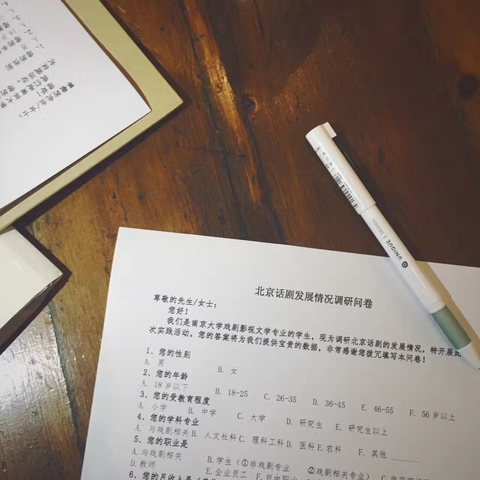 尊敬的先生/女士：
北京话剧发展情况调研问卷
尊敬的先生/女士：
您好！
我们是南京大学戏剧影视文学专业的学生。现为调研北京话剧的发展情况，特开展此
次实践活动。您的答案将为我们提供宝贵的数据。非常感谢您拨冗填写本问卷！
1、您的性别
A. 男 B. 女
2、您的年龄
A. 18 岁以下 B. 18-25 C. 26-35 D. 36-45 E. 46-55 F. 56 岁以上
3、您的受教育程度
A. 小学 B. 中学 C. 大学 D. 研究生 E. 研究生以上
4、您的学科专业
A. 与戏剧相关 B. 人文社科 C. 理科工科 D. 医科 E. 农科 F. 其他
5、您的职业是
A. 与戏剧相关 B. 学生（①非戏剧专业 ②戏剧相关专业）
D. 教师 E. 企业员工
6、您的月收入是
UNIQUE